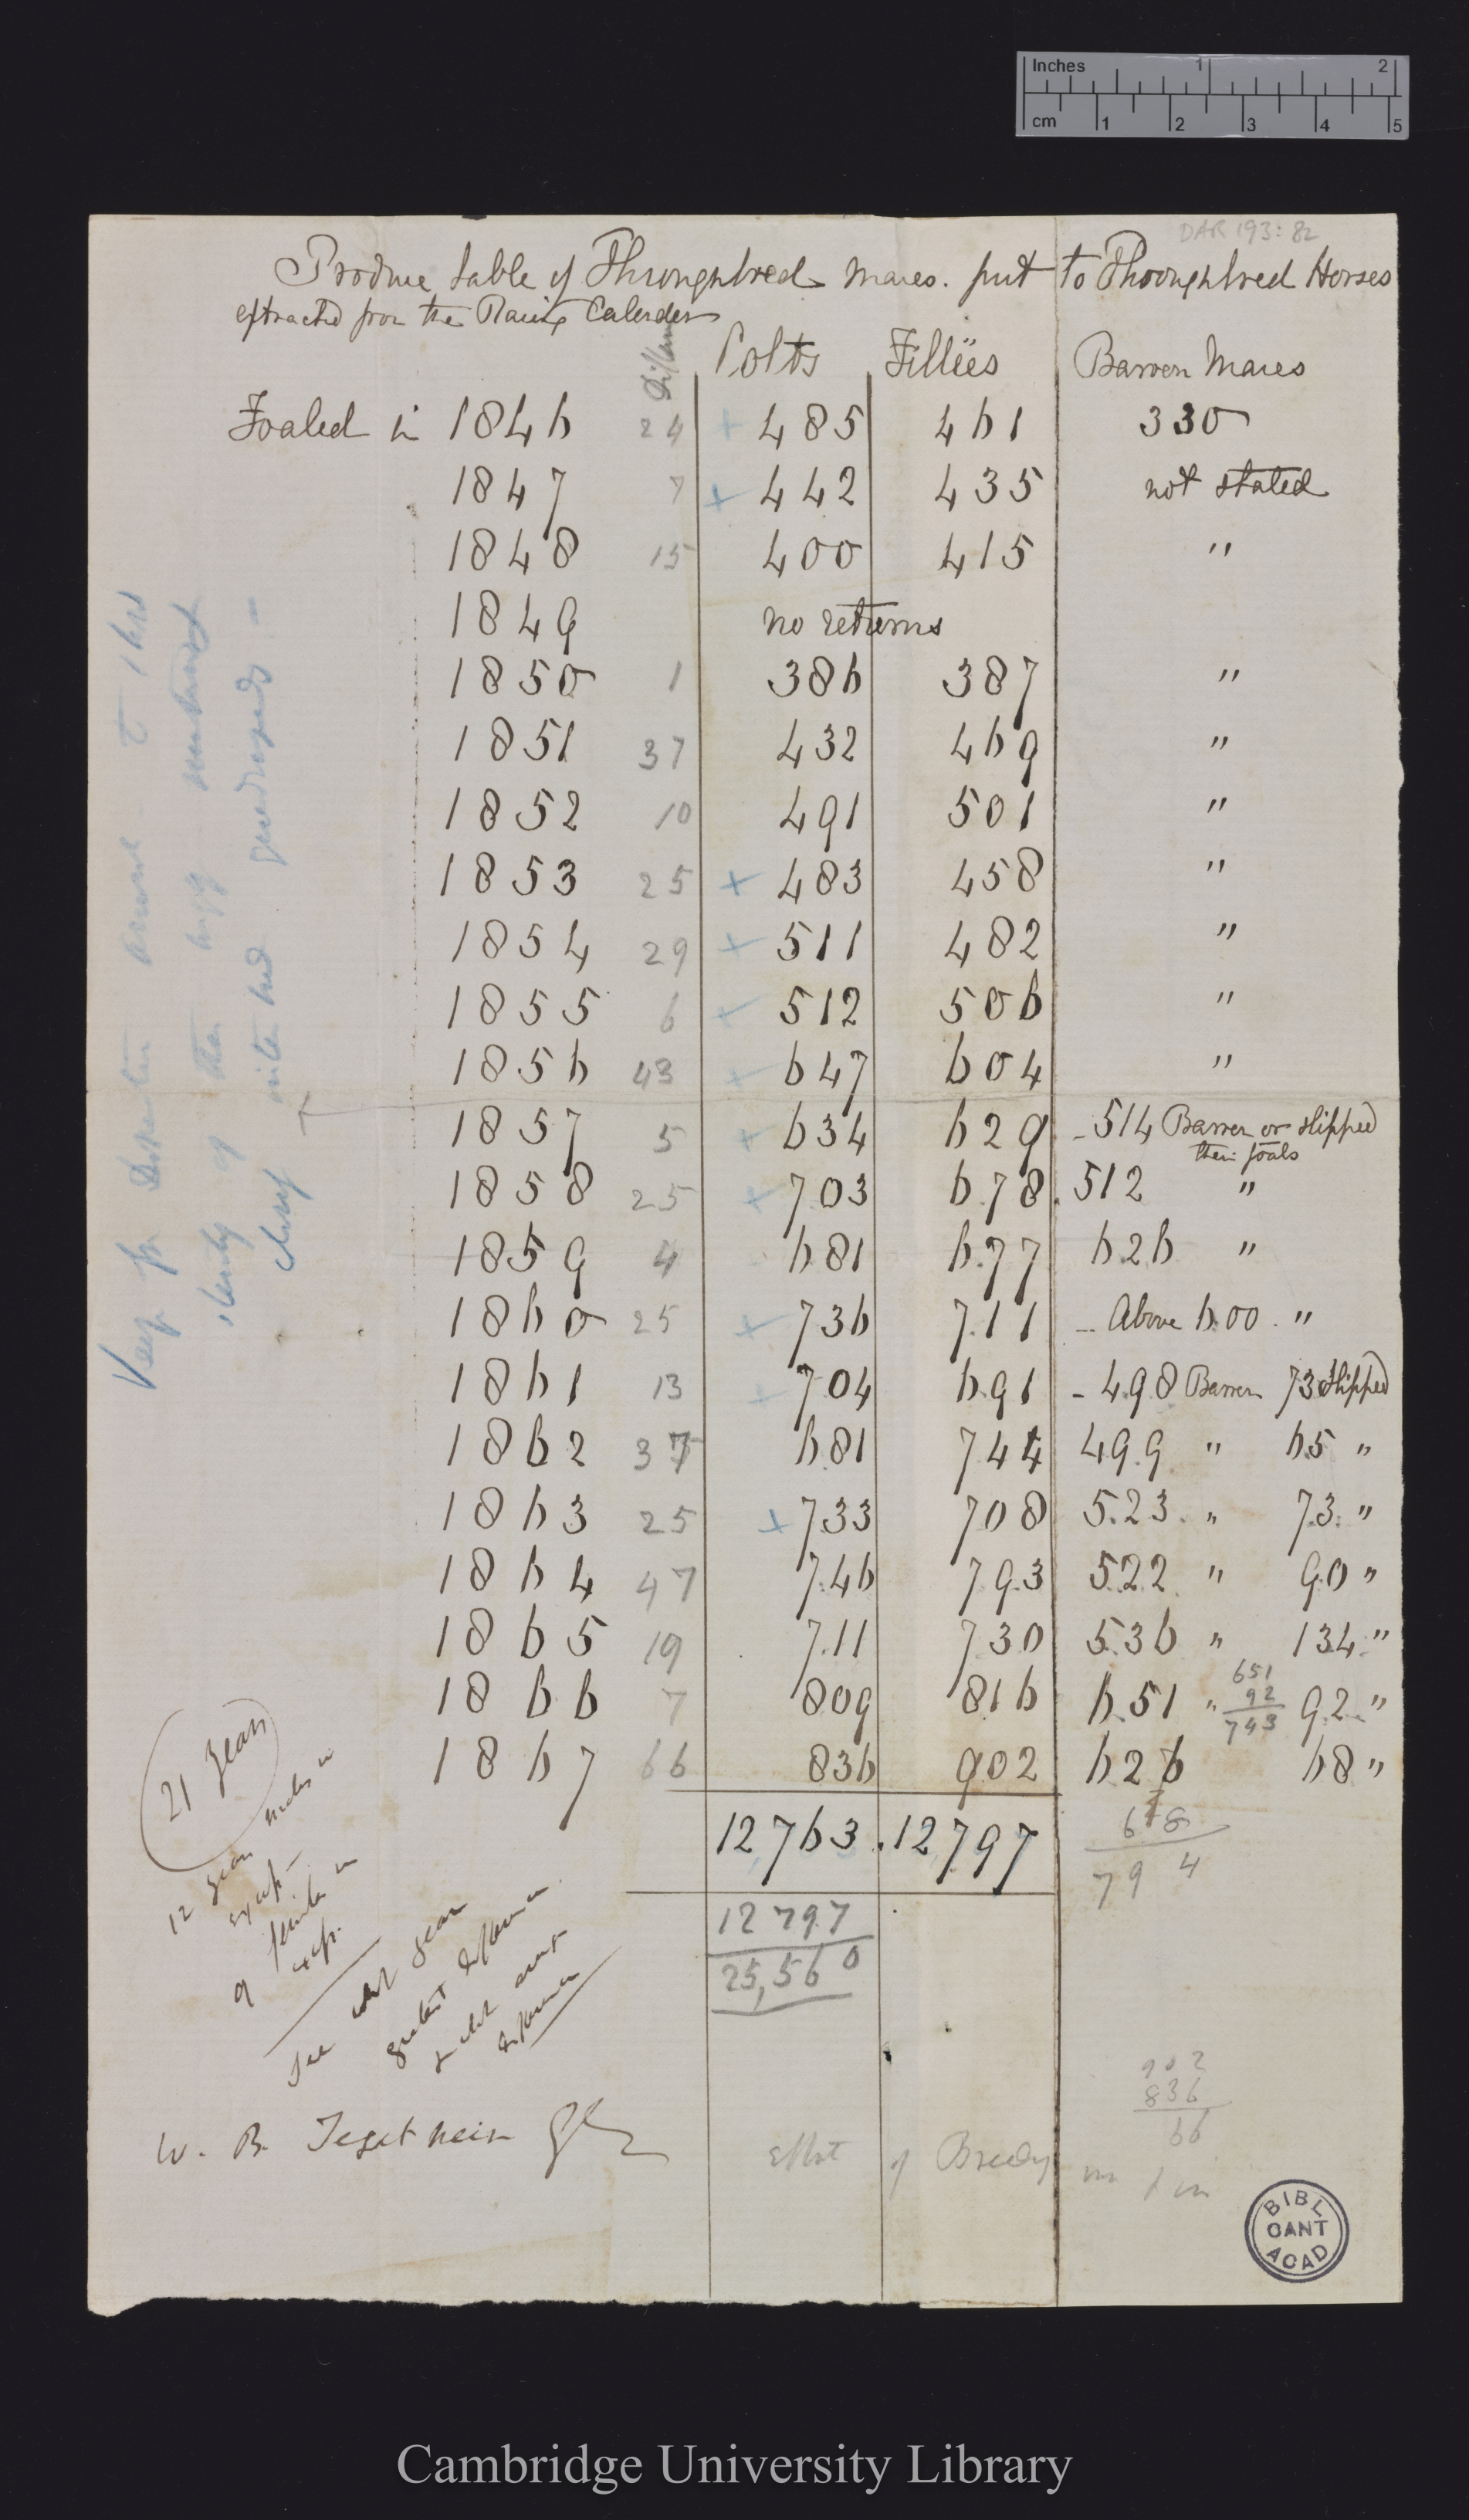 Inches 1 2
cm 1 2 3 4 5
DAR 193: 82
Produce table of Throughbred Mares. put to Thoroughbred Horses
extracted from the Racing Calender
Colts Fillies Barren Mares
Foaled in 1846 24 + 485 461 330
1847 7 + 442 435 not stated
1848 15 400 415 "
1849 no returns
1850 1 386 387 "
1851 37 432 469 "
1852 10 491 501 "
1853 25 + 483 458 "
1854 29 + 511 482 "
1855 6 + 512 506 "
1856 43 + 647 604 "
1857 5 + 634 629 - 514 Barren or slipped
their foals
1858 25 + 703 678 512 "
1859 4 681 677 626 "
1860 25 + 736 711 - Above 600 "
1861 13 + 704 691 - 498 Barren 73 slipped
1862 37 681 744 499 " 65 "
1863 25 + 733 708 523 " 73 "
1864 47 746 793 522 " 90 "
1865 19 711 730 536 " 134 "
1866 7 809 816 651 " 92 "
651
92
743
1867 66 836 902 626 68 "
12763 12797
68
794
12797
25,560
21 years
12 years
males in
excess
9 females in
excess
See what year
greatest difference
& what average
difference
902
836
66
W. B. Tegetmeier
Effect of Breeding in & in
BIBL
CANT
ACAD
Cambridge University Library